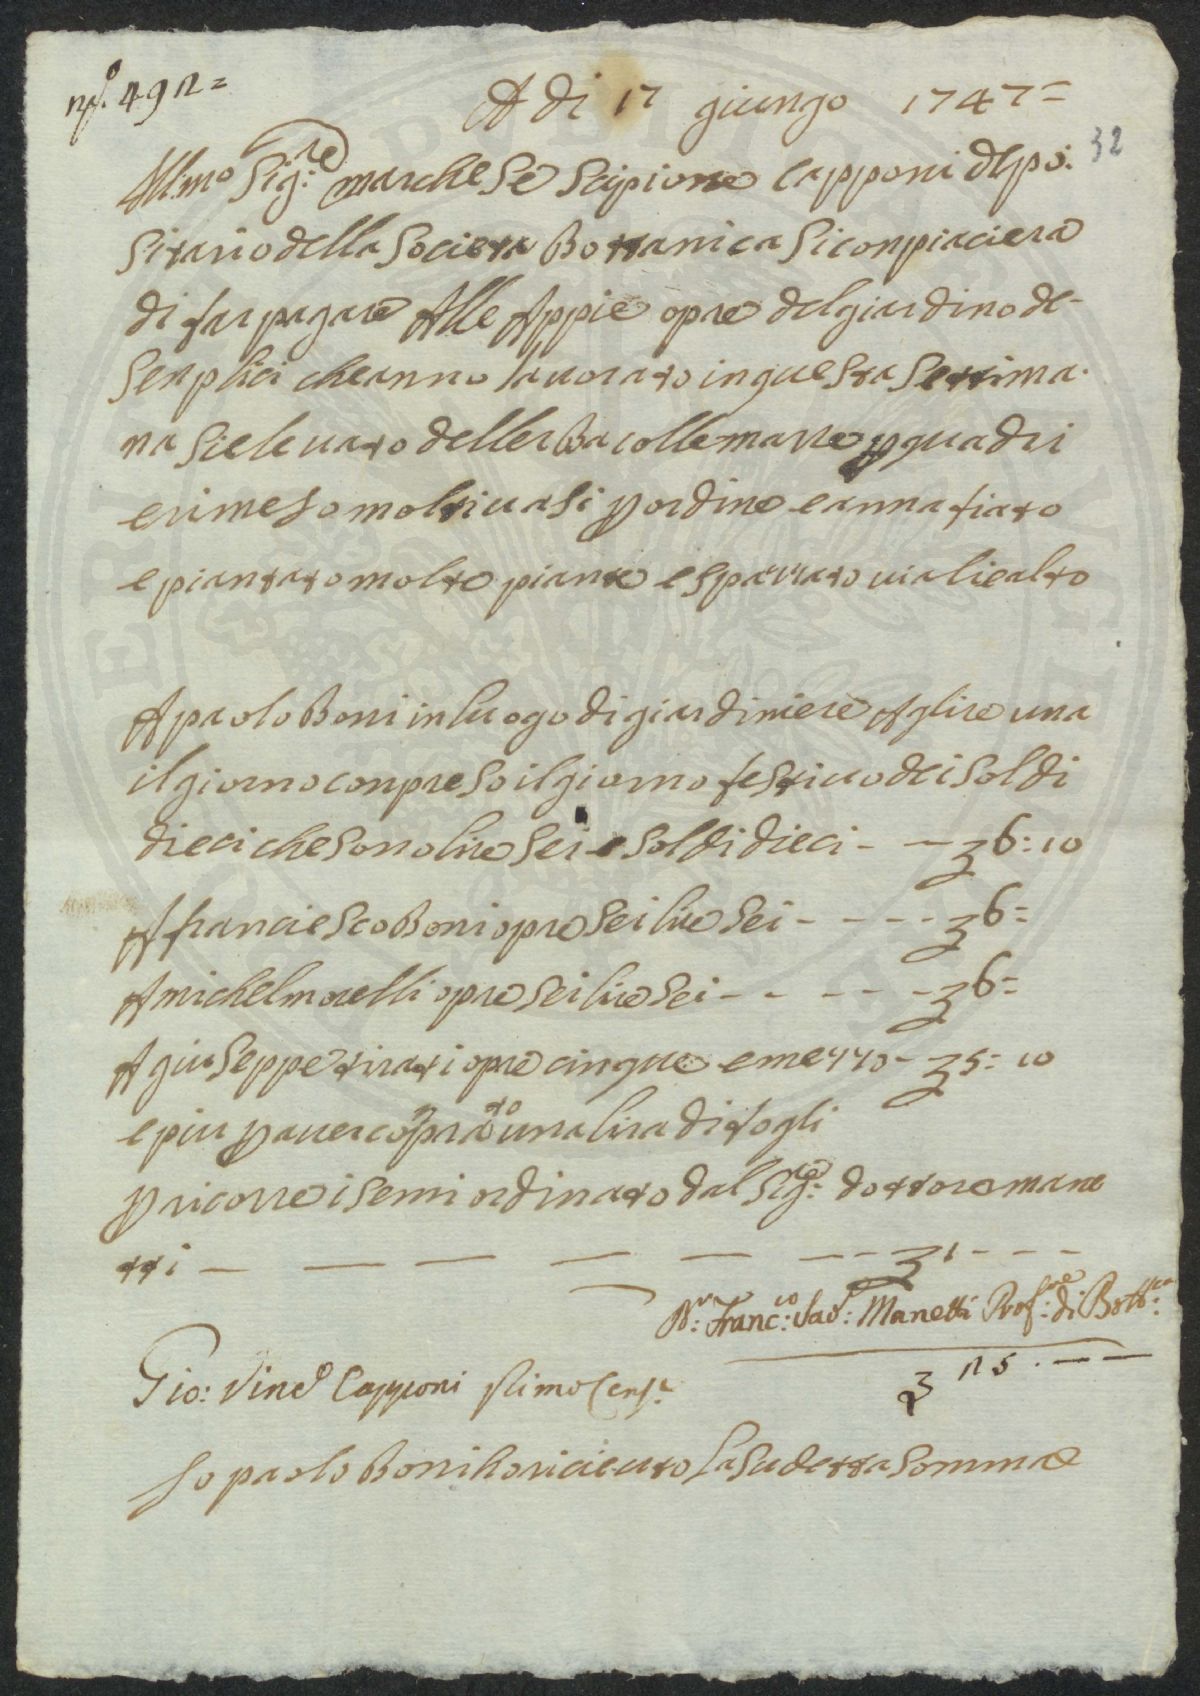 No. 492=
A di 17 giungo 1747=
32
Ill:mo Sig:re marchese Scipione Capponi depo:
sitario della Societa Bottanica Si conpiaciera
di far pagare Alle Appie opre del giardino de-
Senplici che anno lauorato in questa settima-
na Si e leuato dell erba colle marre p quadri
e rimeso molti uasi p ordine e annafiato
e piantato molte piante e spazzato uiali e alto
A paolo Boni in luogo di giardiniere A lire una
il giorno conpreso il giorno festiuo dei soldi
dieci che sono lire Sei e soldi dieci - - 36: 10
A franciesco Boni opre sei lire sei - - - - 36=
A michel morelli opre sei lire sei - - - - - 36=
A giuseppe tirati opre cinque e mezzo - 35: 10
e piu p auer coprato una lira di fogli
p ricorre i semi ordinato dal Sig:re dottore mane
tti - - - - - - - 31 - - -
Dr: Franc:co Sav: Manetti Prof:re di Bott:ca
3 25 . - -
Gio: Vinco Capponi Primo Cens:e
Io paolo Boni ho riceuto la sudetta somma